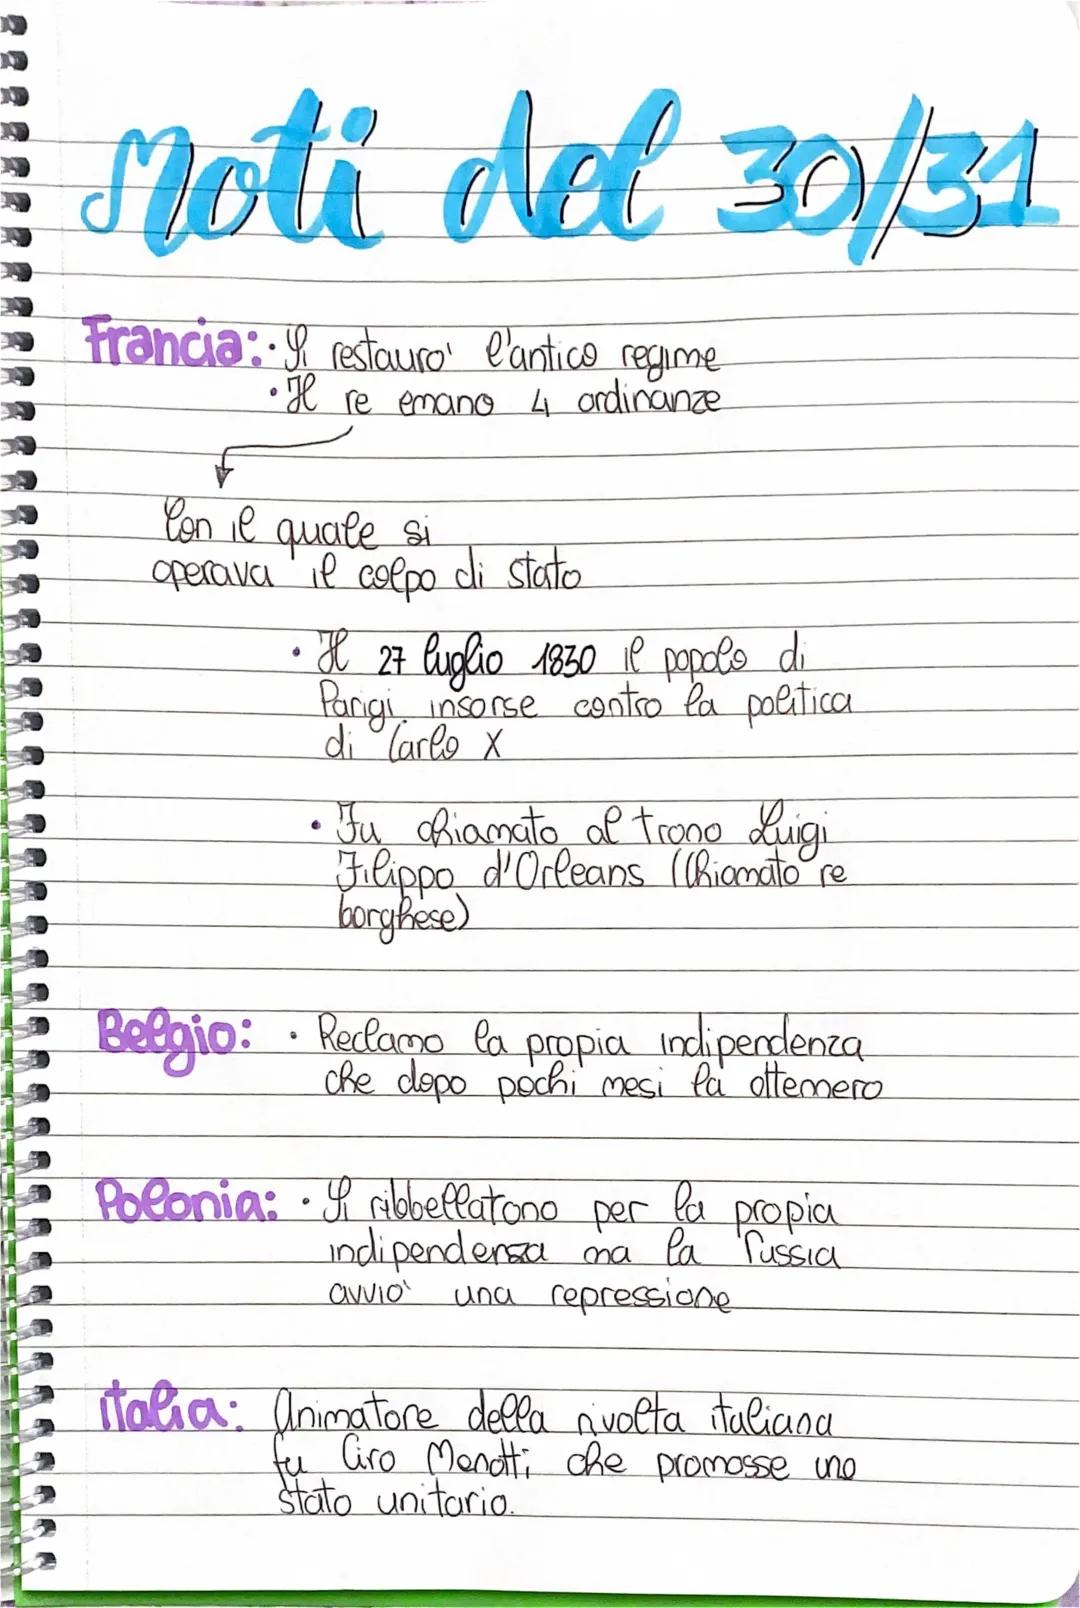 Moti del 30/31
Francia: • Si restauro' l'antico regime
• Il re emano 4 ordinanze
Con il quale si
operava il colpo di stato
• Il 27 luglio 1830 il popolo di
Parigi insorse contro la politica
di Carlo X
• Fu chiamato al trono Luigi
Filippo d'Orleans (Chiamato re
borghese)
Belgio: • Reclamo la propia indipendenza
che dopo pochi mesi la ottennero
Polonia: • Si ribbellatono per la propia
indipendenza ma la Russia
avvio' una repressione
italia: Animatore della rivolta italiana
fu Ciro Menotti che promosse uno
stato unitario.